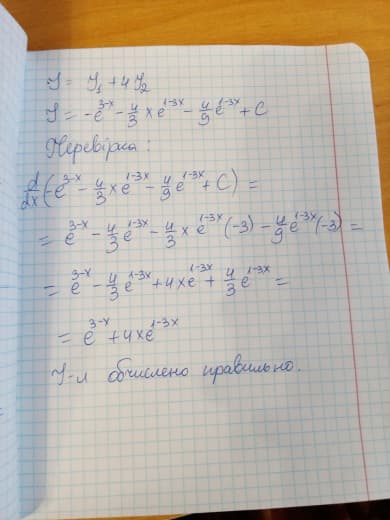 I = I₁ + 4I₂
I = -e^(3-x) - 4/3 x e^(1-3x) - 4/9 e^(1-3x) + C
Перевірка:
d/dx (-e^(3-x) - 4/3 x e^(1-3x) - 4/9 e^(1-3x) + C) =
= e^(3-x) - 4/3 e^(1-3x) - 4/3 x e^(1-3x) (-3) - 4/9 e^(1-3x) (-3) =
= e^(3-x) - 4/3 e^(1-3x) + 4x e^(1-3x) + 4/3 e^(1-3x) =
= e^(3-x) + 4x e^(1-3x)
I-л обчислено правильно.